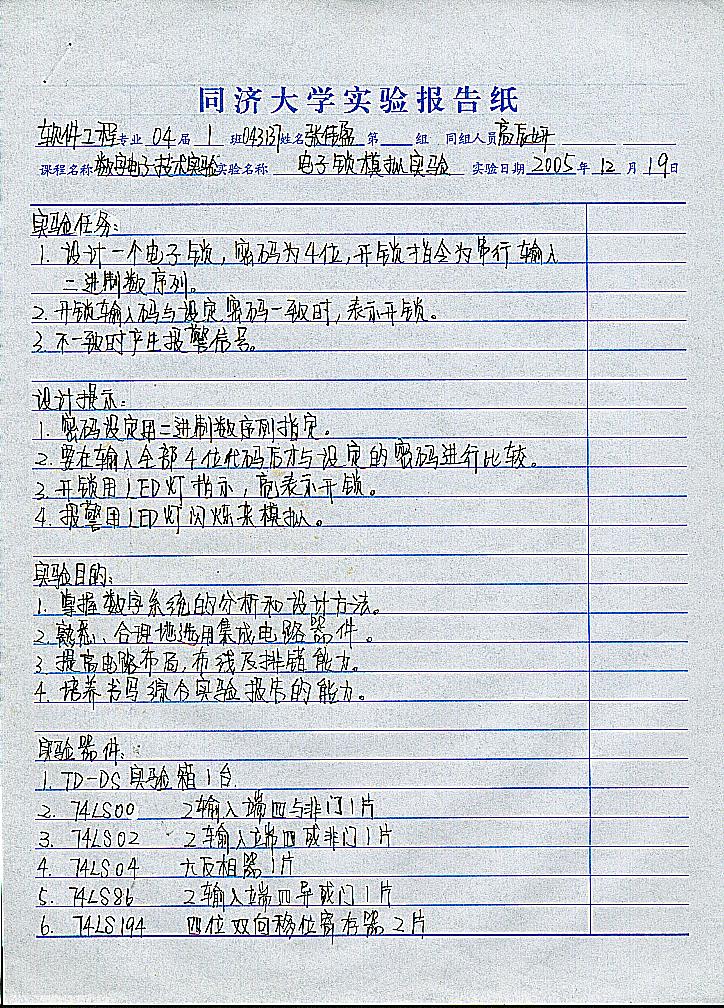 同济大学实验报告纸
软件工程专业 04 届 1 班043137姓名张伟磊 第 组 同组人员高辰妍
课程名称数字电子技术实验实验名称 电子锁模拟实验 实验日期 2005 年 12 月 19 日
实验任务:
1. 设计一个电子锁，密码为4位，开锁指令为串行输入
二进制数序列。
2. 开锁输入码与设定密码一致时，表示开锁。
3. 不一致时产生报警信号。
设计提示:
1. 密码设定用二进制数序列指定。
2. 要在输入全部4位代码后才与设定的密码进行比较。
3. 开锁用LED灯指示，亮表示开锁。
4. 报警用LED灯闪烁来模拟。
实验目的:
1. 掌握数字系统的分析和设计方法。
2. 熟悉、合理地选用集成电路器件。
3. 提高电路布局，布线及排错能力。
4. 培养书写综合实验报告的能力。
实验器件:
1. TD-DS实验箱1台
2. 74LS00 2输入端四与非门1片
3. 74LS02 2输入端四或非门1片
4. 74LS04 六反相器1片
5. 74LS86 2输入端四异或门1片
6. 74LS194 四位双向移位寄存器2片